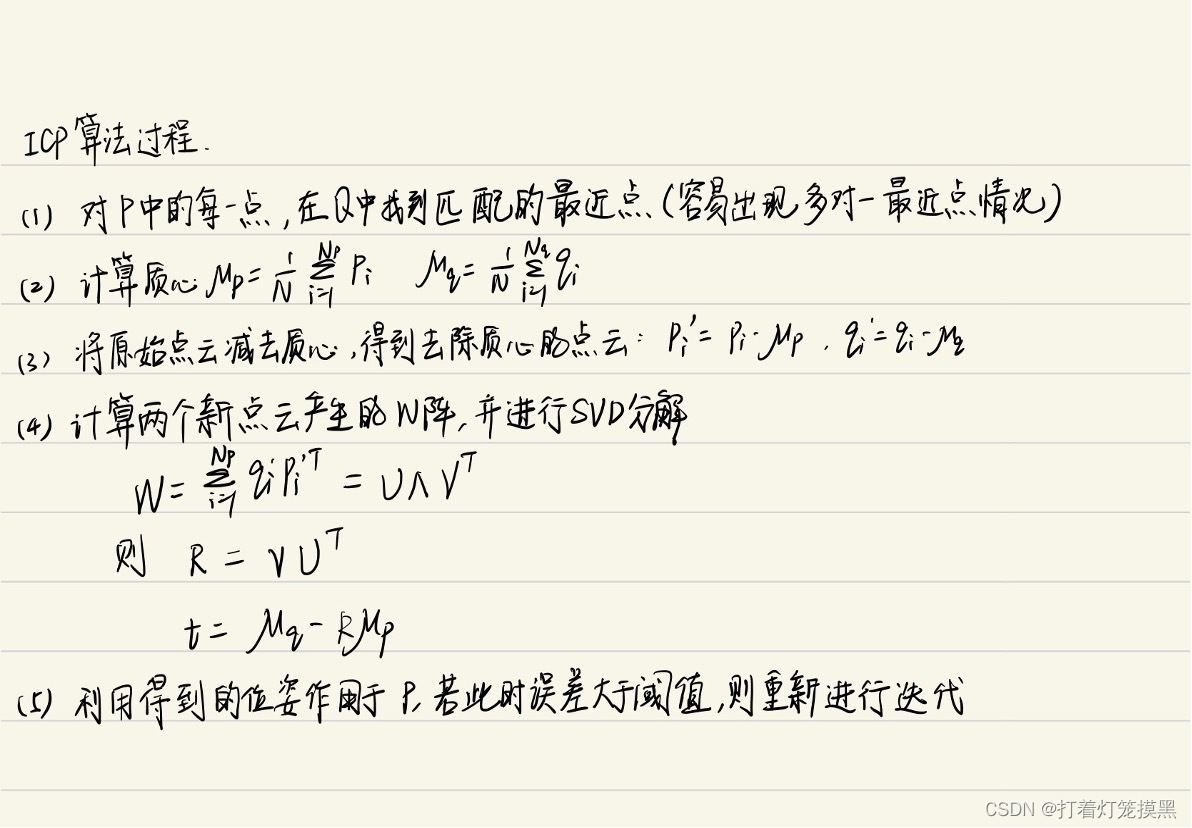 ICP算法过程.
(1) 对P中的每一点,在Q中找到匹配的最近点(容易出现多对一最近点情况)
(2) 计算质心 μp = 1/N Σ_{i=1}^{Np} Pi  μq = 1/N Σ_{i=1}^{Nq} qi
(3) 将原始点云减去质心,得到去除质心的点云: Pi' = Pi - μp , qi' = qi - μq
(4) 计算两个新点云产生的W阵,并进行SVD分解
W = Σ_{i=1}^{Np} qi' Pi'^T = U Λ V^T
则 R = V U^T
t = μq - Rμp
(5) 利用得到的位姿作用于P,若此时误差大于阈值,则重新进行迭代
CSDN @打着灯笼摸黑